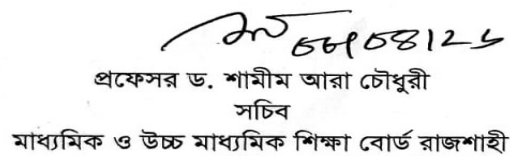 প্রফেসর ড. শামীম আরা চৌধুরী
সচিব
মাধ্যমিক ও উচ্চ মাধ্যমিক শিক্ষা বোর্ড রাজশাহী